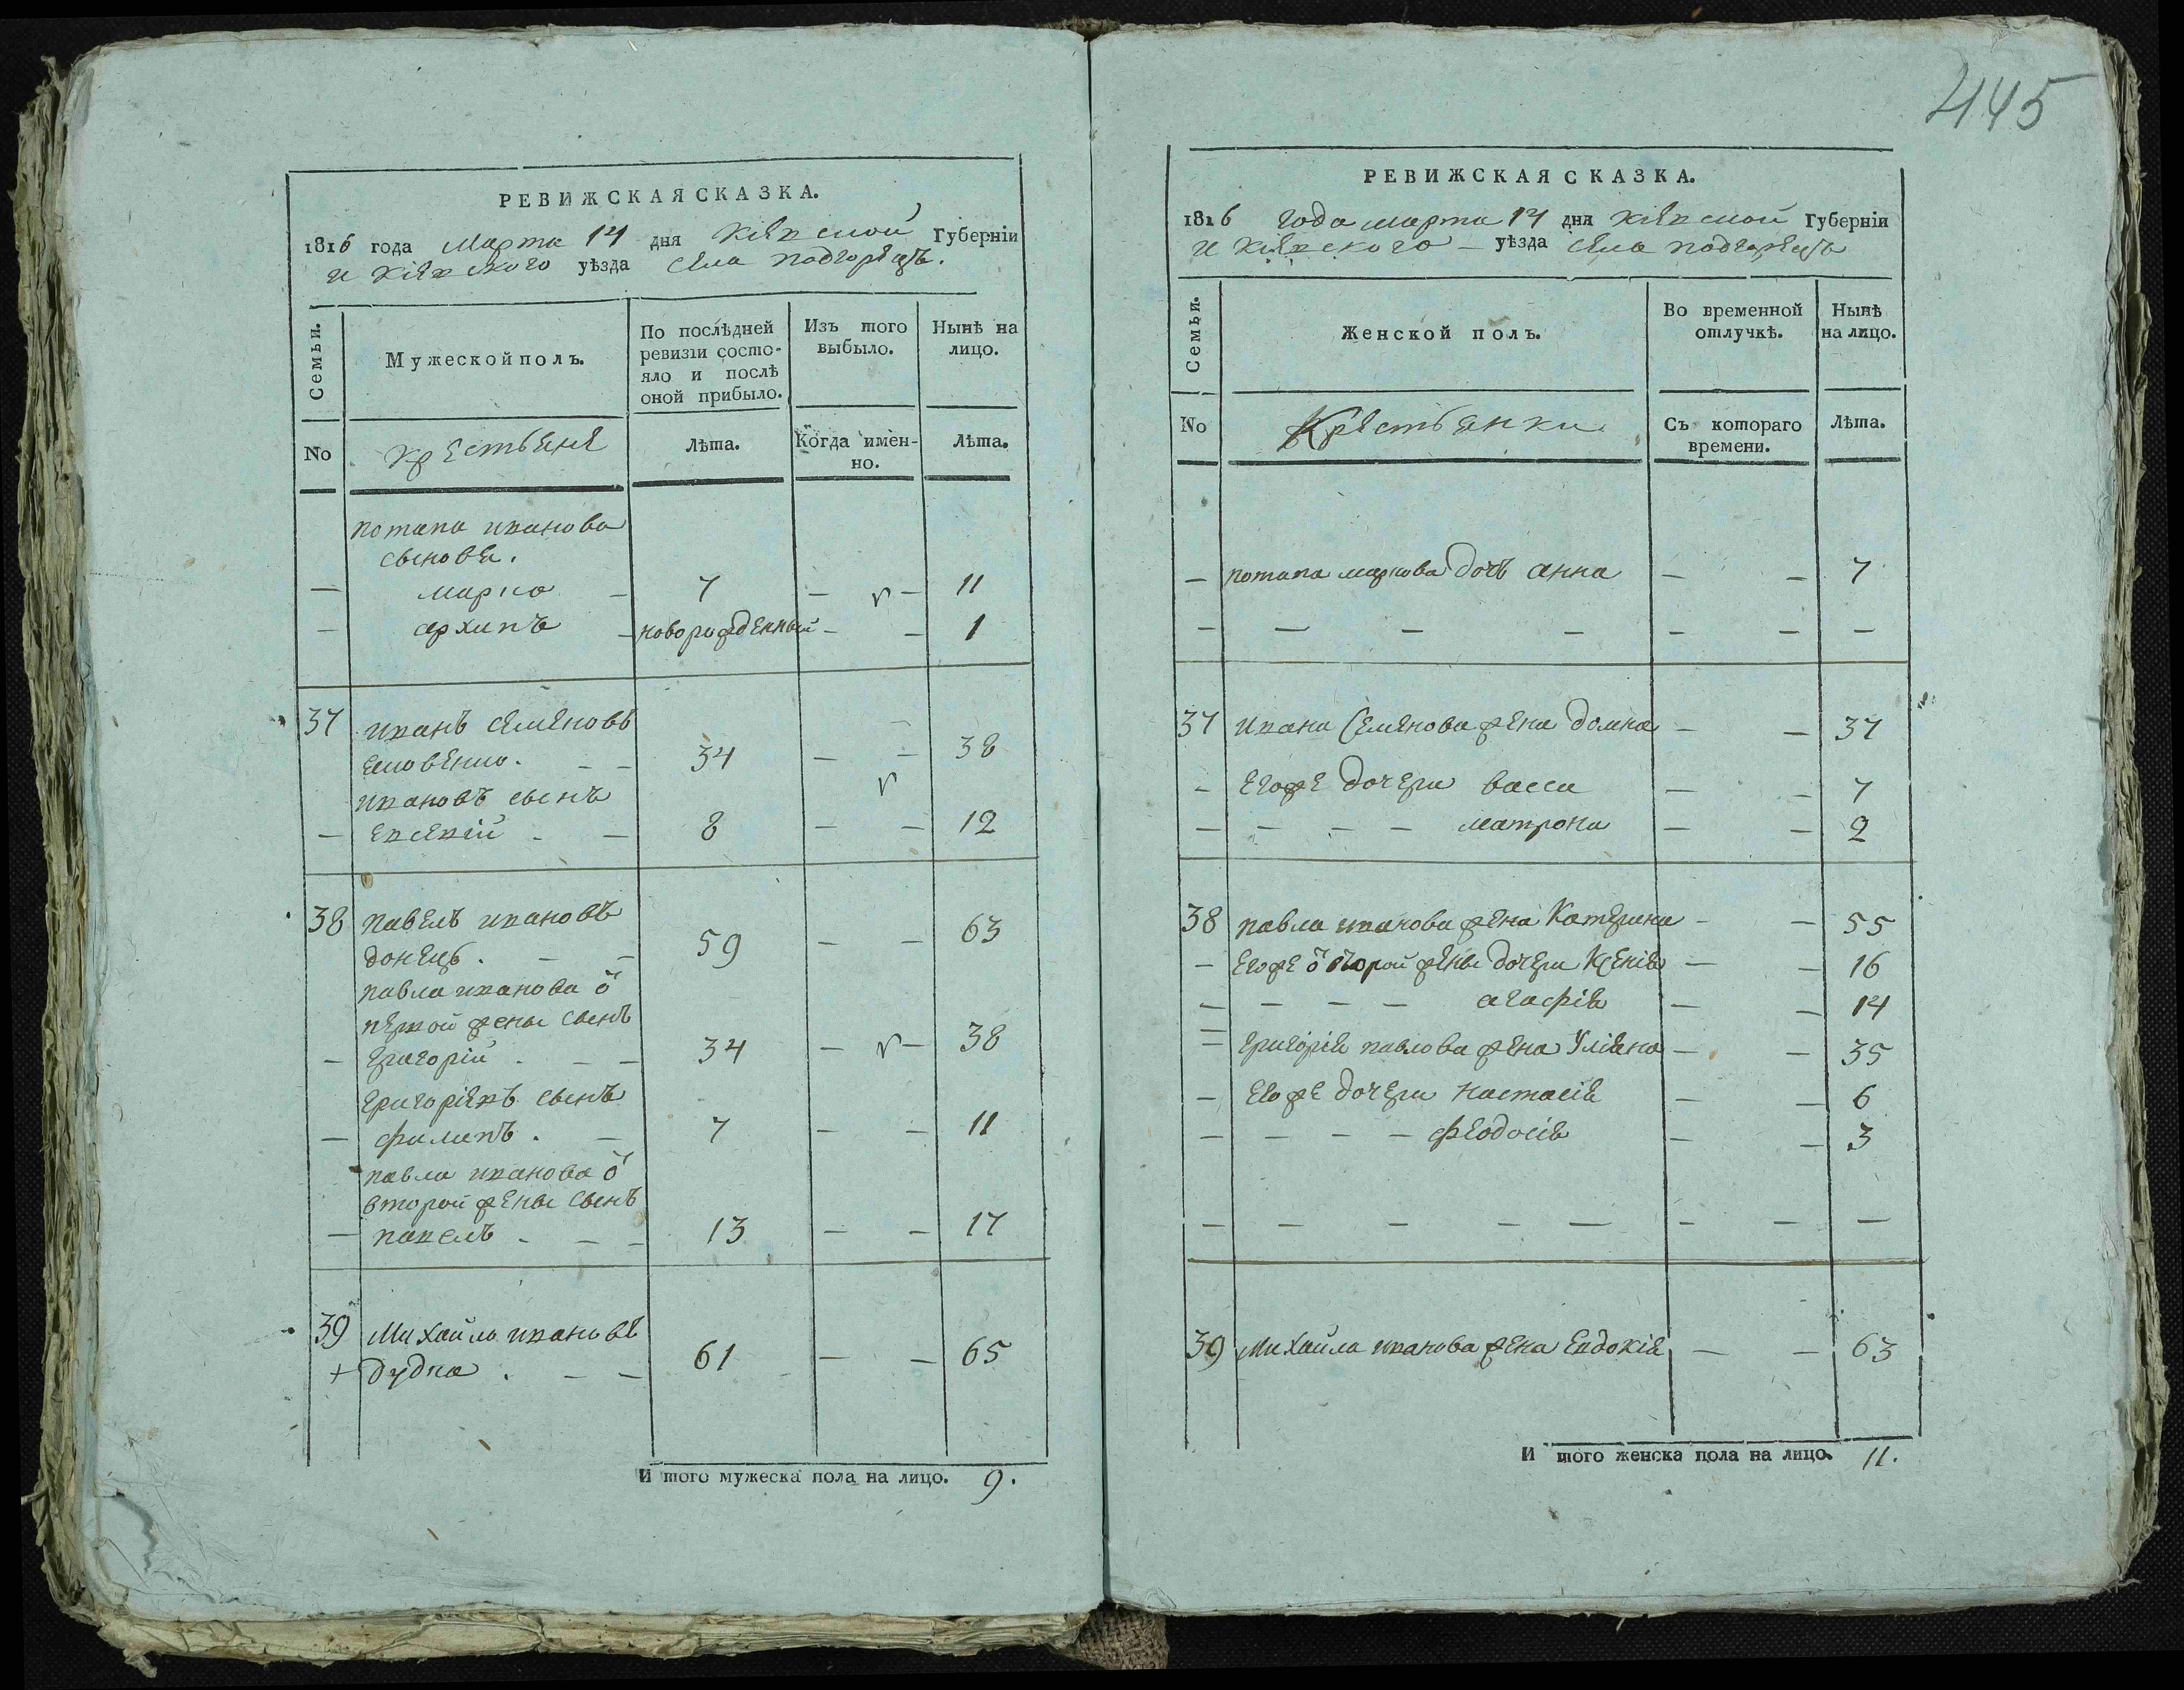 РЕВИЖСКАЯ СКАЗКА.
1816 года марта 14 дня кіевской Губерніи
и кіевского уѣзда села подгорецъ.
Семьи.
Мужеской полъ.
По послѣдней ревизіи состояло и послѣ оной прибыло.
Изъ того выбыло.
Нынѣ на лицо.
No
крестьяне
Лѣта.
Когда именно.
Лѣта.
потапа иванова
сыновя.
— марко — 7 — — 11
— архипъ — новорожденный — — 1
37 иванъ семеновъ
34 — — 38
ивановъ сынъ
— 8 — — 12
38 павелъ ивановъ
донецъ. — — 59 — — 63
павла иванова о
первой жены сынъ
— григорій . — — 34 — — 38
григоріевъ сынъ
— филипъ . — 7 — — 11
павла иванова о
второй жены сынъ
— павелъ — — — 13 — — 17
39 Михайло ивановъ
+ дудка . — — 61 — — 65
И того мужеска пола на лицо. 9.
445
РЕВИЖСКАЯ СКАЗКА.
1816 года марта 14 дня кіевской Губерніи
и кіевского — уѣзда села подгорецъ
Семьи.
Женской полъ.
Во временной отлучкѣ.
Нынѣ на лицо.
No
Крестьянки
Съ котораго времени.
Лѣта.
— потапа маркова дочь анна — — 7
— — — — — — —
37 ивана Семенова жена домна — — 37
— егоже дочери васса — — 7
— — — — матрона — — 2
38 павла иванова жена Катерина — — 55
— егоже о второй жены дочери Ксенія — — 16
— — — — агафія — — 14
— григорія павлова жена Уліяна — — 35
— егоже дочери настасія — — 6
— — — — феодосія — — 3
— — — — — — — —
39 Михайла иванова жена Евдокія — — 63
И того женска пола на лицо. 11.